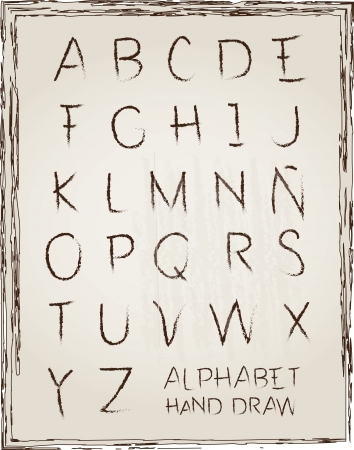 A B C D E
F G H I J
K L M N Ñ
O P Q R S
T U V W X
Y Z ALPHABET
HAND DRAW